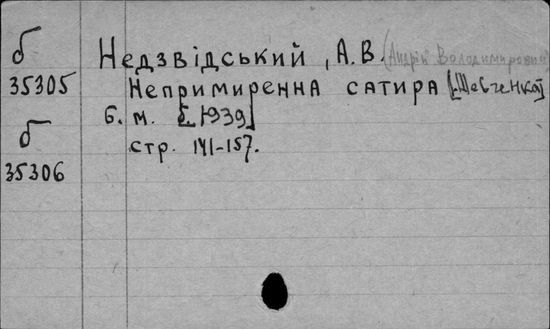 б
35305
б
35306
Недзвідський, А.В. (Андрій Володимирович)
Непримиренна сатира [Шевченка]
б. м. [1939]
стр. 141-157.